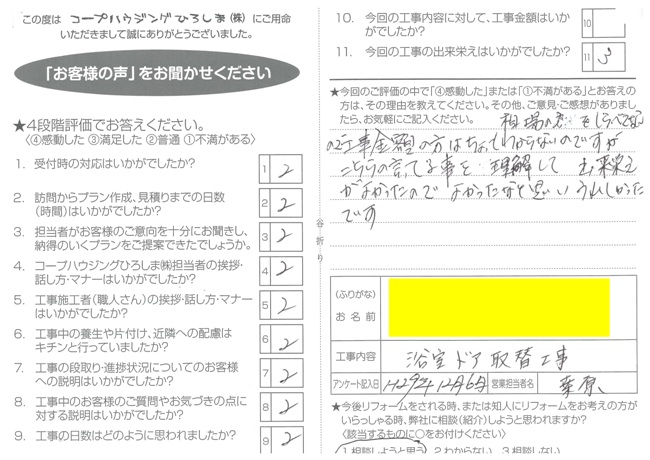 この度は コープハウジングひろしま(株) にご用命
いただきまして誠にありがとうございました。
「お客様の声」をお聞かせください
★4段階評価でお答えください。
〈④感動した ③満足した ②普通 ①不満がある〉
1. 受付時の対応はいかがでしたか?
1 2
2. 訪問からプラン作成、見積りまでの日数
(時間)はいかがでしたか?
2 2
3. 担当者がお客様のご意向を十分にお聞きし、
納得のいくプランをご提案できたでしょうか。
3 2
4. コープハウジングひろしま㈱担当者の挨拶・
話し方・マナーはいかがでしたか?
4 2
5. 工事施工者(職人さん)の挨拶・話し方・マナー
はいかがでしたか?
5 2
6. 工事中の養生や片付け、近隣への配慮は
キチンと行っていましたか?
6 2
7. 工事の段取り・進捗状況についてのお客様
への説明はいかがでしたか?
7 2
8. 工事中のお客様のご質問やお気づきの点に
対する説明はいかがでしたか?
8 2
9. 工事の日数はどのように思われましたか?
9 2
谷折り
10. 今回の工事内容に対して、工事金額はいか
がでしたか?
10
11. 今回の工事の出来栄えはいかがでしたか?
11 3
★今回のご評価の中で「④感動した」または「①不満がある」とお答えの
方は、その理由を教えてください。その他、ご意見・ご感想がありまし
たら、お気軽にご記入ください。
相場の をしらべてない
の工事金額の方はちょっとわからないのですが
こちらの言ってる事を 理解して 出来栄え
がよかったので よかったなと思い うれしかった
です
(ふりがな)
お名前
工事内容
浴室ドア取替工事
アンケート記入日
H29年12月6日
営業担当者名
栗原
★今後リフォームをされる時、または知人にリフォームをお考えの方が
いらっしゃる時、弊社に相談(紹介)しようと思われますか?
〈該当するものに○をお付けください〉
1.相談しようと思う 2.わからない 3.相談しない